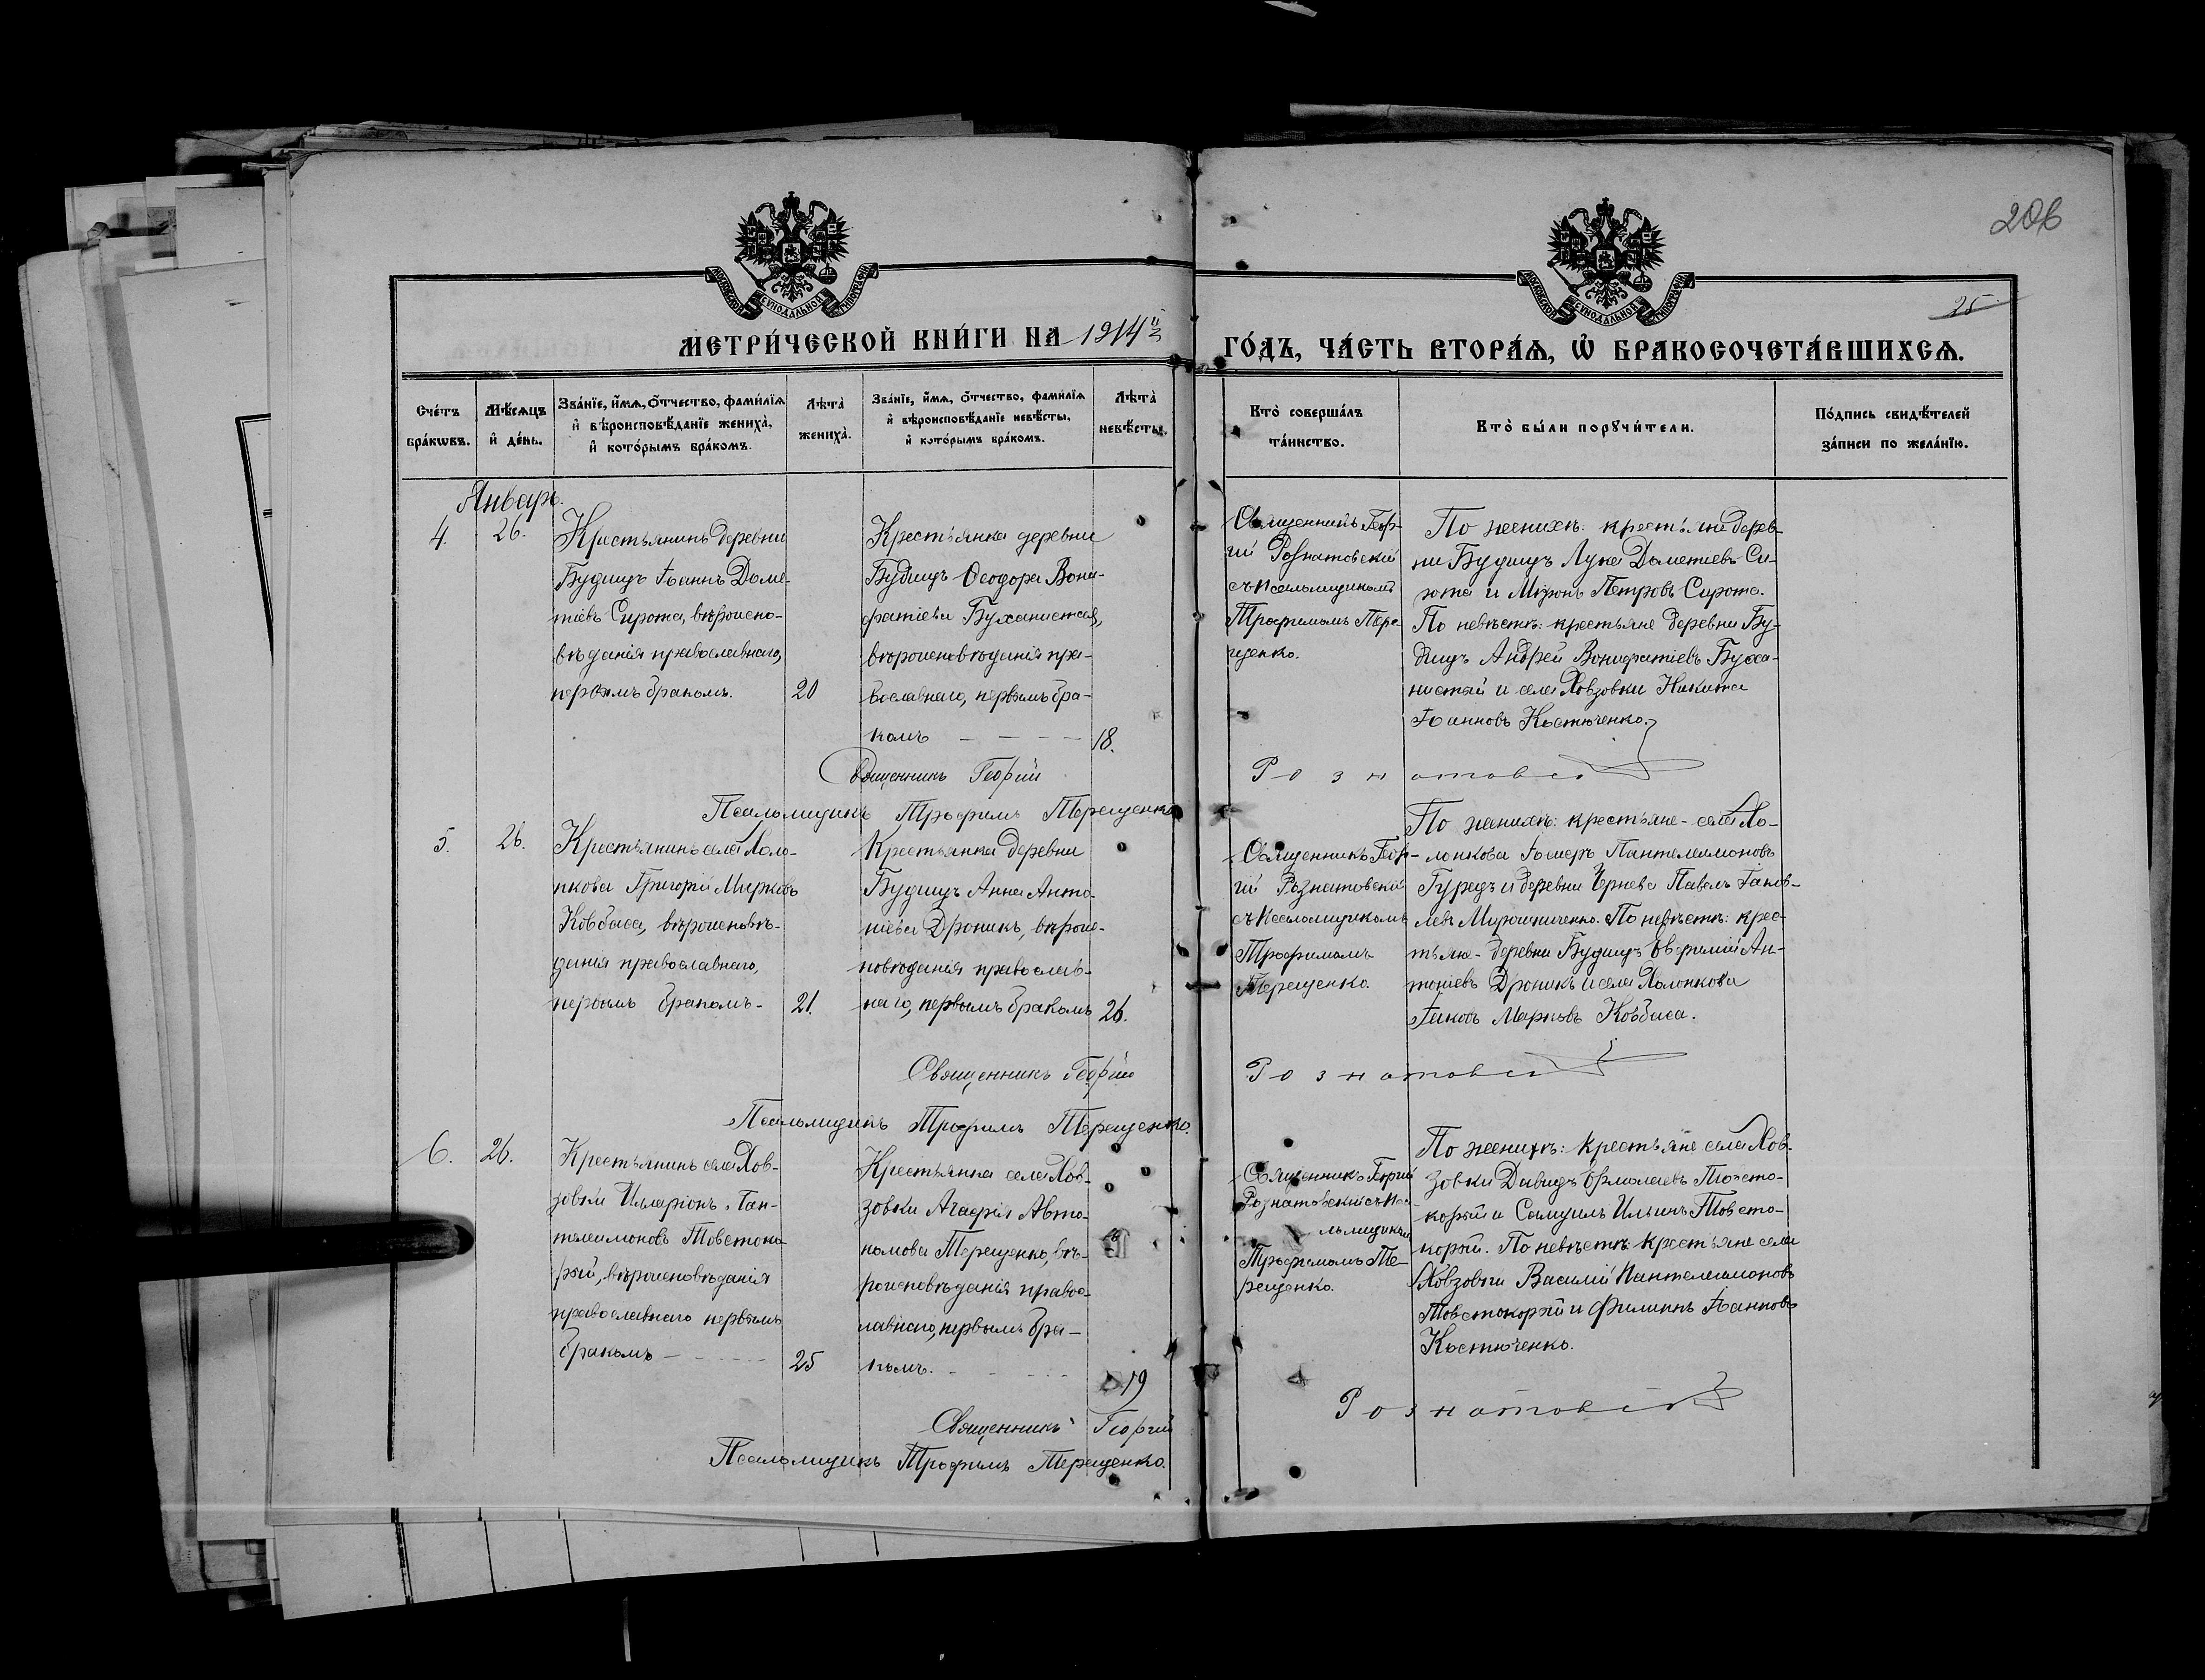 206
25
МОСКОВСКОЙ СѴНОДАЛЬНОЙ ТИПОГРАФІИ
МОСКОВСКОЙ СѴНОДАЛЬНОЙ ТИПОГРАФІИ
МЕТРИ́ЧЕСКОЙ КНИ́ГИ НА 1914й
ГО́ДЪ, ЧА́СТЬ ВТОРА́Ѧ, Ѽ БРАКОСОЧЕТА́ВШИХСѦ.
Сче́тъ бра́кѡвъ.
Мѣ́сѧцъ и҆ де́нь.
Зва́нїе, и҆́мѧ, ѻ҆́тчество, фами́лїѧ
и҆ вѣроисповѣ́данїе жениха̀,
и҆ кото́рымъ бра́комъ.
Лѣта̀ жениха̀.
Зва́нїе, и҆́мѧ, ѻ҆́тчество, фами́лїѧ
и҆ вѣроисповѣ́данїе невѣ́сты,
и҆ кото́рымъ бра́комъ.
Лѣта̀ невѣ́сты.
Кто̀ соверша́лъ
та́инство.
Кто̀ бы́ли порꙋчи́тели.
По́дпись свидѣ́телей
за́писи по жела́нїю.
Январь.
4.
26.
Крестьянинъ деревни
Будищъ Іоаннъ Доме-
тіевъ Сирота, вѣроиспо-
вѣданія православнаго,
первымъ бракомъ.
20
Крестьянка деревни
Будищъ Ѳеодора Вони-
фатіева Буханистая,
вѣроисповѣданія пра-
вославнаго, первымъ бра-
комъ
18.
Священникъ Геор-
гій Рознатовскій
съ псаломщикомъ
Трофимомъ Тере-
щенко.
По женихѣ: крестьяне дерев-
ни Будищъ Лука Дометіевъ Си-
рота и Миронъ Петровъ Сирота.
По невѣстѣ: крестьяне деревни Бу-
дищъ Андрей Вонифатіевъ Буха-
нистый и села Ховзовки Никита
Іоанновъ Костюченко.
Священникъ Георгій Рознатовскій
Псаломщикъ Трофимъ Терещенко
5.
26.
Крестьянинъ села Холо-
пкова Григорій Марковъ
Ковбаса, вѣроисповѣ-
данія православнаго,
первымъ бракомъ
21.
Крестьянка деревни
Будищъ Анна Анто-
ніева Дроникъ, вѣроис-
повѣданія православ-
наго, первымъ бракомъ
26.
Священникъ Геор-
гій Рознатовскій
съ псаломщикомъ
Трофимомъ
Терещенко.
По женихѣ: крестьяне села Хо-
лопкова Іосифъ Пантелеимоновъ
и деревни Павелъ Іаков-
левъ Мирошниченко. По невѣстѣ: крес-
тьяне деревни Будищъ Евфимій Ан-
тоніевъ Дроникъ и села Холопкова
Іаковъ Марковъ Ковбаса.
Священникъ Георгій Рознатовскій
Псаломщикъ Трофимъ Терещенко.
6.
26.
Крестьянинъ села Хов-
зовки Илларіонъ Пан-
телеимоновъ Товстоко-
рый, вѣроисповѣданія
православнаго первымъ
бракомъ
25
Крестьянка села Хов-
зовки Агафія Авто-
номова Терещенко, вѣ-
роисповѣданія правос-
лавнаго, первымъ бра-
комъ.
19
Священникъ Георгій
Рознатовскій съ пса-
ломщикомъ
Трофимомъ Те-
рещенко.
По женихѣ: крестьяне села Хов-
зовки Давидъ Ермолаевъ Товсто-
корый и Самуилъ Ильинъ Товсто-
корый. По невѣстѣ крестьяне села
Ховзовки Василій Пантелеимоновъ
Товстокорый и Филиппъ Іоанновъ
Костюченко.
Священникъ Георгій Рознатовскій
Псаломщикъ Трофимъ Терещенко.